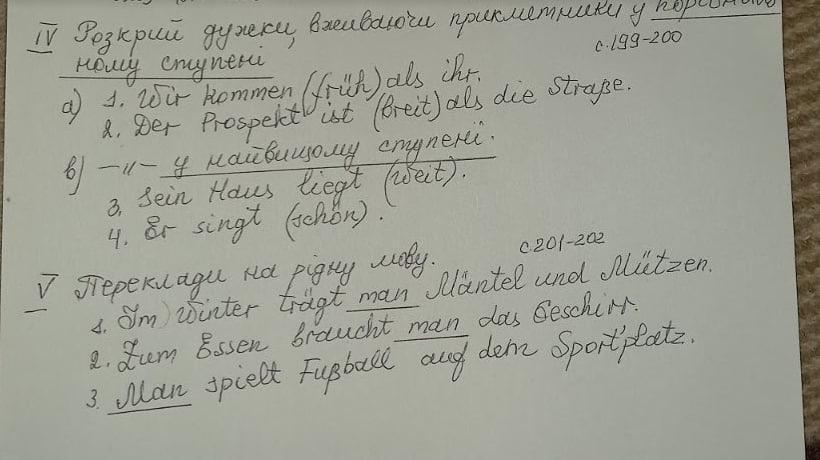 IV Розкрий дужки, вживаючи прикметники у
ному ступені с. 199-200
а) 1. Wir kommen (früh) als ihr.
2. Der Prospekt ist (breit) als die Straße.
в) -"- у найвищому ступені.
3. Sein Haus liegt (weit).
4. Er singt (schön).
V Переклади на рідну мову. с. 201-202
1. Im Winter trägt man Mäntel und Mützen.
2. Zum Essen braucht man das Geschirr.
3. Man spielt Fußball auf dem Sportplatz.